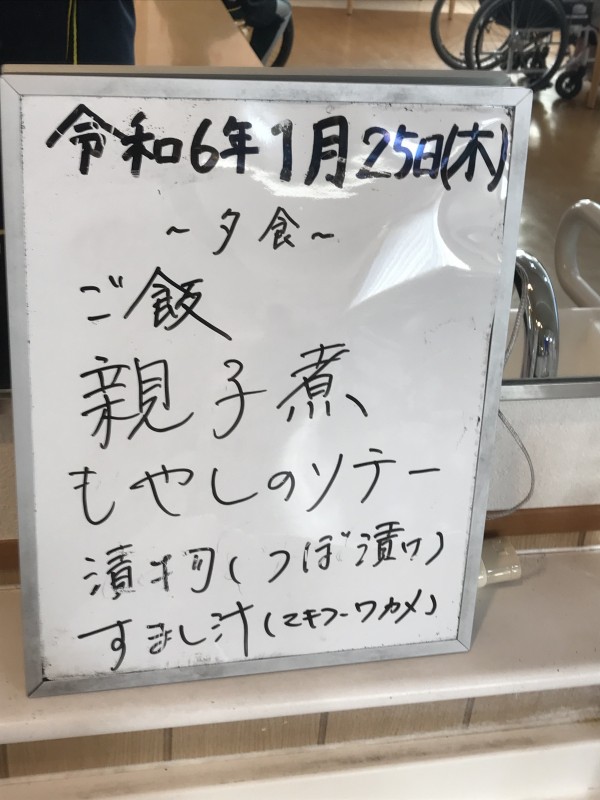 令和6年1月25日(木)
~夕食~
ご飯
親子煮
もやしのソテー
漬物(つぼ漬け)
すまし汁(マキフーワカメ)